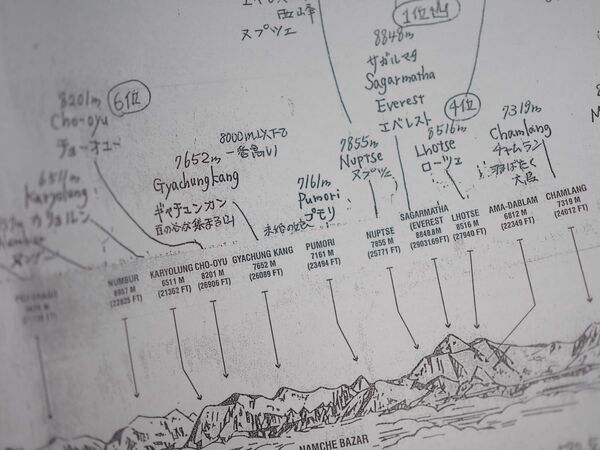 西峰
ヌプツェ
1位
8848m
サガルマタ
Sagarmatha
Everest
エベレスト
8201m
6位
Cho-oyu
チョーオユー
6511m
Karyolung
カリョルン
8000m以下で
一番高い
7652m
Gyachungkang
ギャチュンカン
7161m
Pumori
プモリ
未婚の娘
7855m
Nuptse
ヌプツェ
4位
8516m
Lhotse
ローツェ
7319m
Chamlang
チャムラン
羽ばたく
大鳥
NUMBUR
6957 M
(22825 FT)
KARYOLUNG
6511 M
(21362 FT)
CHO-OYU
8201 M
(26906 FT)
GYACHUNG KANG
7652 M
(26089 FT)
PUMORI
7161 M
(23494 FT)
NUPTSE
7855 M
(25771 FT)
SAGARMATHA
(EVEREST
8848.8M
(29031.69FT)
LHOTSE
8516 M
(27940 FT)
AMA-DABLAM
6812 M
(22349 FT)
CHAMLANG
7319 M
(24012 FT)
NAMCHE BAZAR